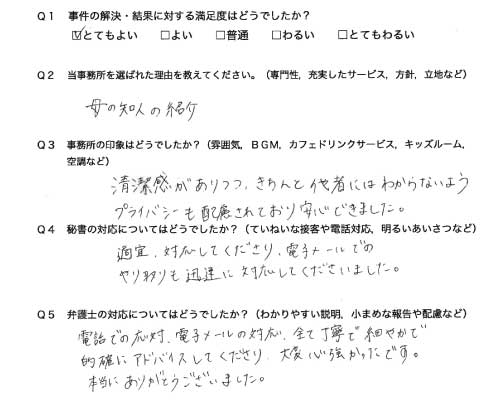 Q1 事件の解決・結果に対する満足度はどうでしたか?
☑とてもよい □よい □普通 □わるい □とてもわるい
Q2 当事務所を選ばれた理由を教えてください。(専門性，充実したサービス，方針，立地など)
母の知人の紹介
Q3 事務所の印象はどうでしたか?(雰囲気，BGM，カフェドリンクサービス，キッズルーム，
空調など)
清潔感がありつつ、きちんと他者にはわからないよう
プライバシーも配慮されており安心できました。
Q4 秘書の対応についてはどうでしたか?(ていねいな接客や電話対応，明るいあいさつなど)
適宜、対応してくださり、電子メールでの
やり取りも迅速に対応してくださいました。
Q5 弁護士の対応についてはどうでしたか?(わかりやすい説明，小まめな報告や配慮など)
電話での応対、電子メールの対応、全て丁寧で細やかで
的確にアドバイスしてくださり、大変心強かったです。
本当にありがとうございました。